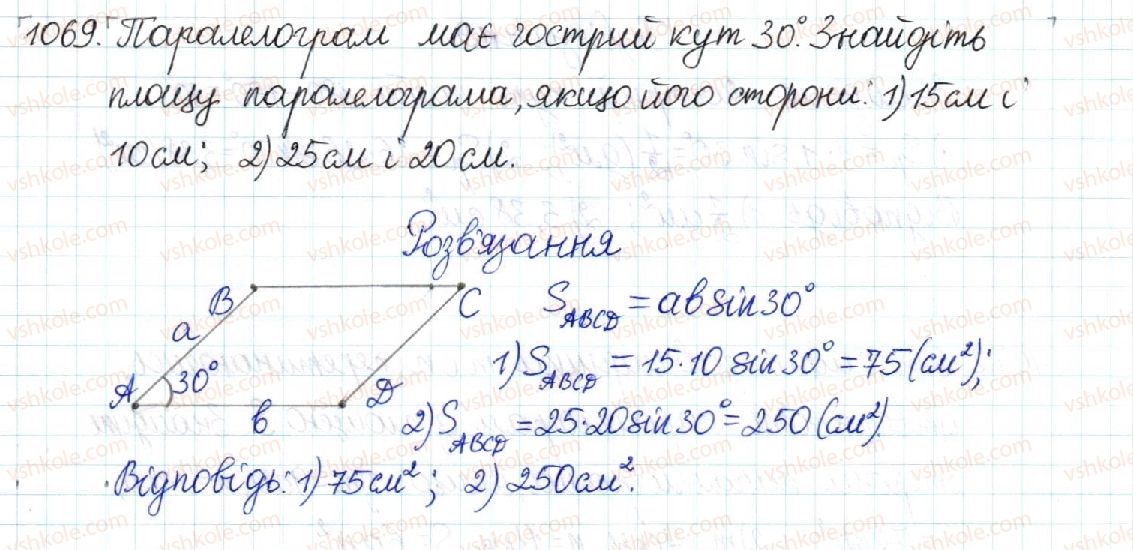 1069. Паралелограм має гострий кут 30°. Знайдіть
площу паралелограма, якщо його сторони: 1) 15см і
10см; 2) 25см і 20см.
Розв'язання
B C
a
A 30° D
b
S_ABCD = ab sin30°
1) S_ABCD = 15·10 sin30° = 75 (см²);
2) S_ABCD = 25·20 sin30° = 250 (см²).
Відповідь: 1) 75см²; 2) 250см².